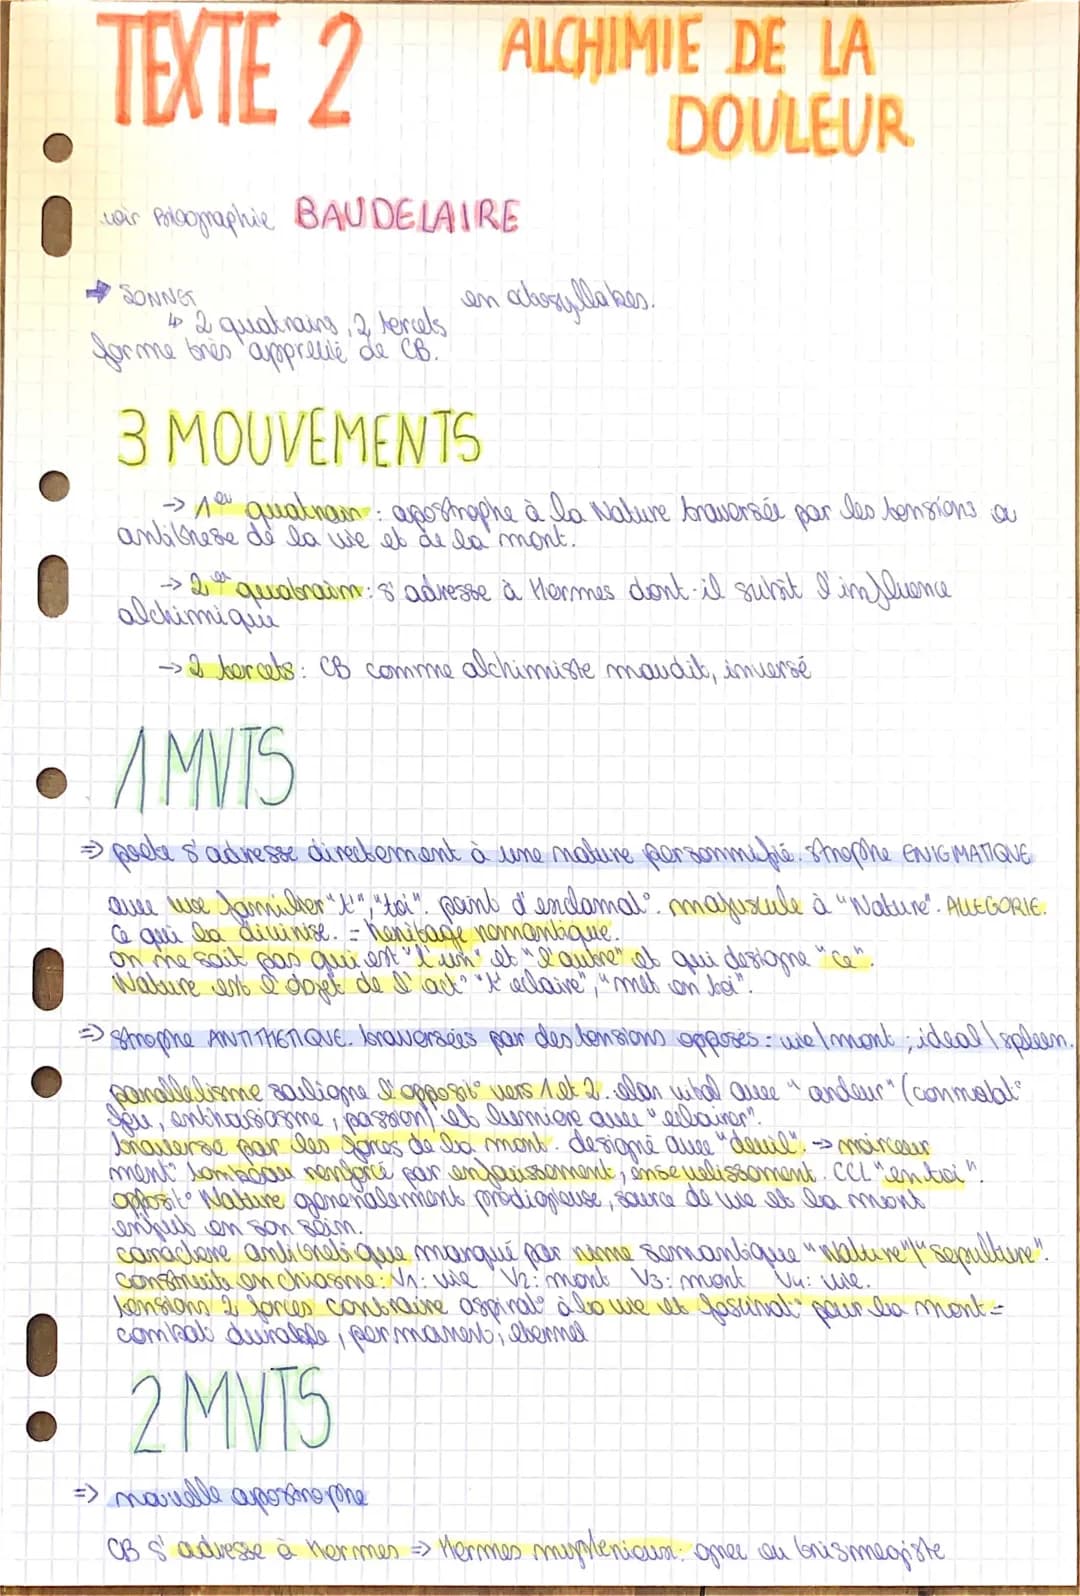 TEXTE 2
ALCHIMIE DE LA
DOULEUR
voir Biographie BAUDELAIRE
→ SONNET en octosyllabes.
↳ 2 quatrains, 2 tercets
forme très apprécié de CB.
3 MOUVEMENTS
→ 1er quatrain : apostrophe à la Nature traversée par les tensions ou
antithèse de la vie et de la mort.
→ 2er quatrain : s'adresse à Hermes dont il subit l'influence
alchimique
→ 2 tercets : CB comme alchimiste maudit, inversé
1 MVTS
⇒ poète s'adresse directement à une nature personnifié. strophe ENIGMATIQUE
avec use familier "t'", "toi". point d'exclamat°. majuscule à "Nature". ALLEGORIE.
ce qui la divinise. = héritage romantique.
on ne sait pas qui est "l'un" et "l'autre" et qui designe "ce".
Nature est l'objet de l'act° "t'eclaire", "met en toi".
⇒ strophe ANTITHETIQUE. traversées par des tensions opposés : vie/mort ; ideal/spleen.
parallelisme souligne l'opposit° vers 1 et 2. elan vital avec "ardeur" (connotat°
feu, enthousiasme, passion) et lumière avec "eclairer".
traversé par les forces de la mort. designé avec "deuil". → noirceur
ment° tombeau renforcé par enfouissement, ensevelissement. CCL "en toi".
opposit° Nature generalement prodigieuse, source de vie et la mort
enfoui en son sein.
caractère antithetique marqué par rime semantique "Nature"/"sepulture".
construits en chiasme : V1: vie V2: mort V3: mort V4: vie.
tensions 2 forces contraire aspirat° à la vie et fascinat° pour la mort =
combat durable, permanent, eternel
2 MVTS
⇒ nouvelle apostrophe
CB s'adresse à Hermes ⇒ Hermes mystérieux : grec ou trismegiste